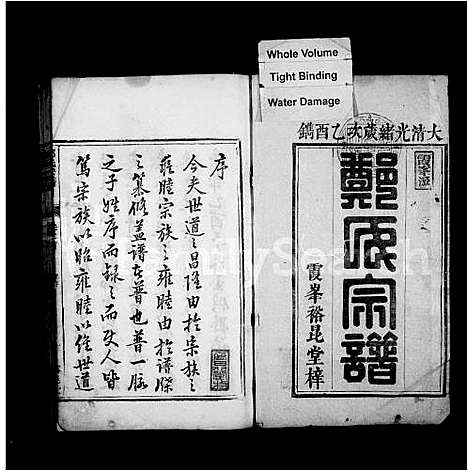 Whole Volume
Tight Binding
Water Damage
大清光緒歲次乙酉鐫
鄭氏宗譜
霞峯裕昆堂梓
序
今夫世道之昌隆由於宗族之
雍睦宗族之雍睦由於譜牒
之纂修蓋譜者普也普一脉
之子姓序而録之而及人皆
篤宗族以昭雍睦以維世道
FamilySearch